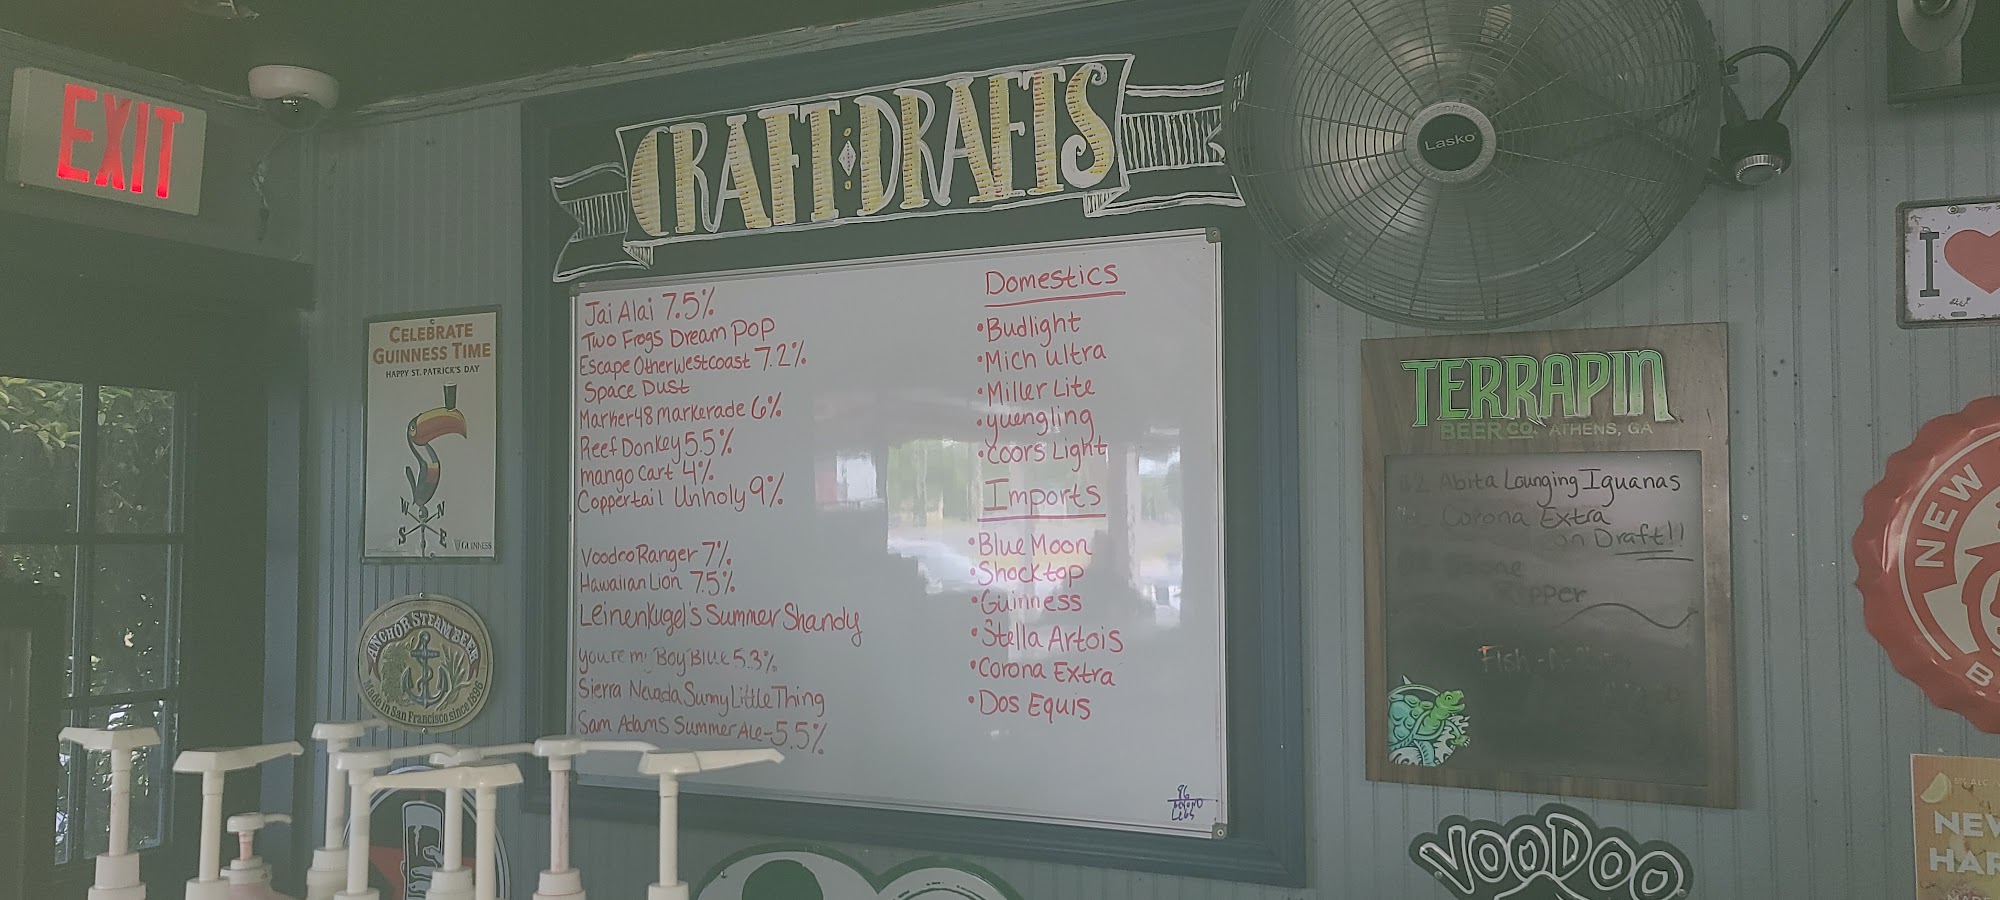 EXIT
CRAFT DRAFTS
Jai Alai 7.5%
Two Frogs Dream Pop
Escape Otherwestcoast 7.2%
Space Dust
Marker48 Markerade 6%
Reef Donkey 5.5%
mango Cart 4%
Coppertail Unholy 9%
Voodoo Ranger 7%
Hawaiian Lion 7.5%
Leinenkugel's Summer Shandy
you're my Boy Blue 5.3%
Sierra Nevada Sunny Little Thing
Sam Adams Summer Ale-5.5%
Domestics
•Budlight
•Mich ultra
•Miller Lite
•yuengling
•Coors Light
Imports
•Blue Moon
•Shocktop
•Guinness
•Stella Artois
•Corona Extra
•Dos Equis
96
CELEBRATE
GUINNESS TIME
HAPPY ST. PATRICK'S DAY
W N
S E
GUINNESS
ANCHOR STEAM BEER
Made in San Francisco since 1896
Lasko
TERRAPIN
BEER CO. ATHENS, GA
Abita Lounging Iguanas
Corona Extra
on Draft!!
VOODOO
I
NEW
B
NEW
HAR